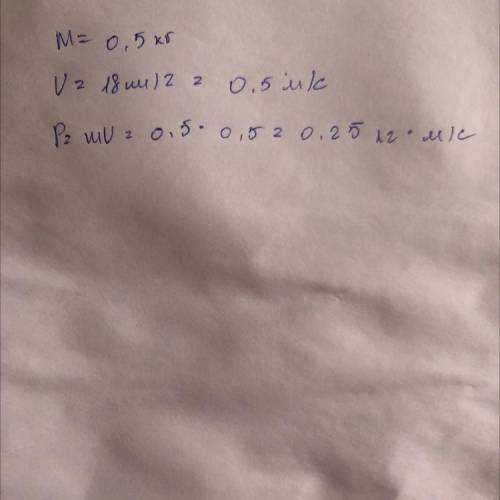 M = 0,5 кг
V = 18 км/г = 0.5 м/с
P = mV = 0,5 · 0,5 = 0,25 кг · м/с